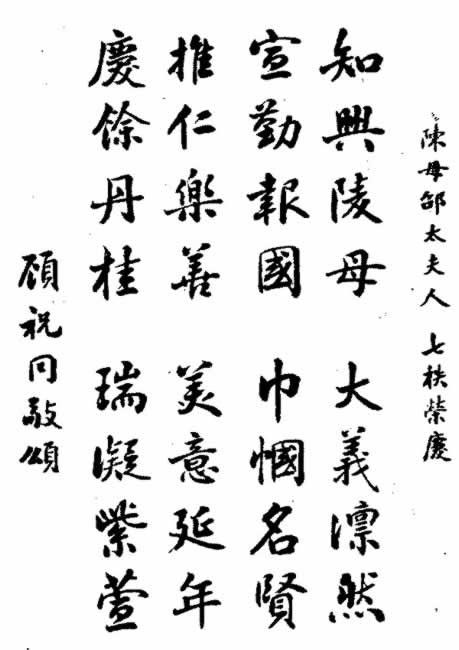 陳母邵太夫人 七秩榮慶
知興陵母 大義凛然
宣勤報國 巾幗名賢
推仁樂善 美意延年
慶餘丹桂 瑞凝紫萱
顧祝同敬頌